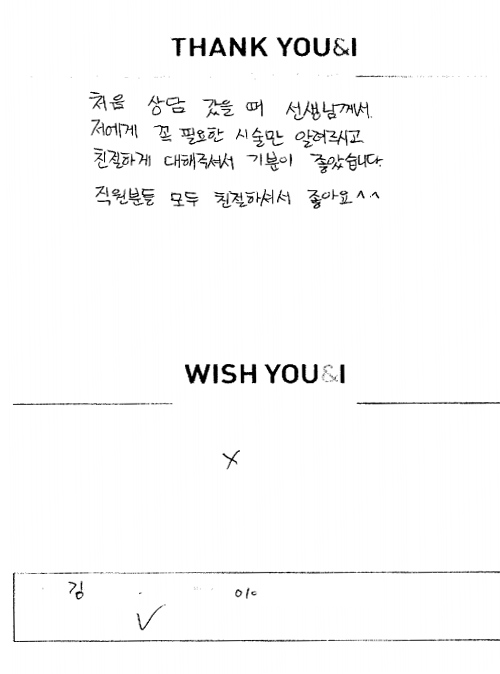 THANK YOU&I
처음 상담 갔을 때 선생님께서
저에게 꼭 필요한 시술만 알려주시고
친절하게 대해주셔서 기분이 좋았습니다.
직원분들 모두 친절하셔서 좋아요^^
WISH YOU&I
X
김 010